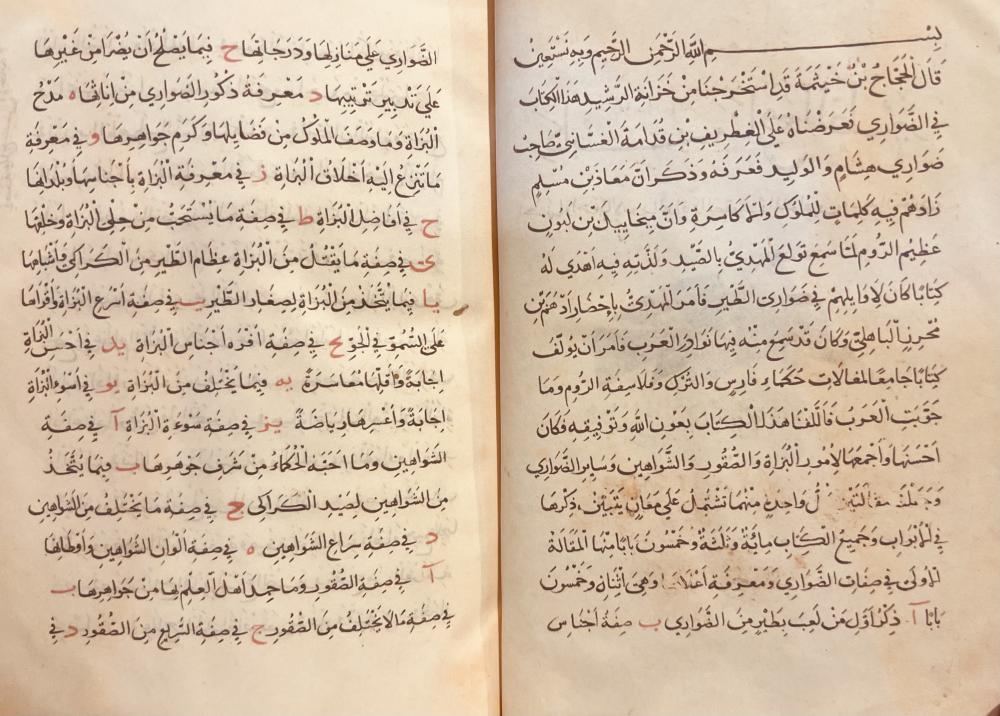 بسم الله الرحمن الرحيم وبه نستعين
قَالَ الْحَجَّاجُ بْنُ خَيْثَمَةَ قَدِ اسْتَخْرَجْنَا مِنْ خَزَانَةِ الرَّشِيدِ هَذَا الْكِتَابَ
فِي الضَّوَارِي فَعَرَضْنَاهُ عَلَى الْغِطْرِيفِ بْنِ قُدَامَةَ الْغَسَّانِيّ صَاحِبِ
ضَوَارِي هِشَامٍ وَالْوَلِيدِ فَعَرَفَهُ وَذَكَرَ أَنَّ مَعَاذَ بْنَ مُسْلِمٍ
زَادَهُمْ فِيهِ كَلِمَاتٍ لِلْمُلُوكِ وَالْأَكَاسِرَةِ وَأَنَّ مِيخَايِيلَ بْنَ لَيُونَ
عَظِيمَ الرُّومِ لَمَّا سَمِعَ تَوَلُّعَ الْمَهْدِيِّ بِالصَّيْدِ وَلَذَّتِهِ فِيهِ أَهْدَى لَهُ
كِتَابًا كَانَ لِأَوَايِلِهِمْ فِي ضَوَارِي الطَّيْرِ فَأَمَرَ الْمَهْدِيُّ بِإِحْضَارِ أَدْهَمَ بْنِ
مُحْرِزٍ الْبَاهِلِيِّ وَكَانَ قَدْ سَمِعَ مِنْهُ فِيهَا نَوَادِرَ الْعَرَبِ فَأَمَرَ أَنْ يُوَلِّفَ
كِتَابًا جَامِعًا لِمَقَالَاتِ حُكَمَاءِ فَارِسَ وَالتُّرْكِ وَفَلَاسِفَةِ الرُّومِ وَمَا
جَرَّبَتِ الْعَرَبُ فَأَلَّفْنَا هَذَا الْكِتَابَ بِعَوْنِ اللَّهِ وَتَوْفِيقِهِ فَكَانَ
أَحْسَنَهَا وَأَجْمَعَهَا لِأُمُورِ الْبُزَاةِ وَالصُّقُورِ وَالشَّوَاهِينِ وَسَايِرِ الضَّوَارِي
وَجَعَلْنَا وَاحِدَةٍ مِنْهُمَا تَشْتَمِلُ عَلَى مَعَانٍ يَتَبَيَّنُ ذِكْرُهَا
فِي الْأَبْوَابِ وَجَمِيعُ الْكِتَابِ مِائَةٌ وَثَلَثَةٌ وَخَمْسُونَ بَابًا مِنْهَا الْمَقَالَةُ
الْأُولَى فِي صِفَاتِ الضَّوَارِي وَمَعْرِفَةِ وَهِيَ اثْنَانِ وَخَمْسُونَ
بَابًا آ ذِكْرُ أَوَّلِ مَنْ لَعِبَ بِطَيْرٍ مِنَ الضَّوَارِي ب صِفَةُ أَجْنَاسِ
الضَّوَارِي عَلَى مَنَازِلِهَا وَدَرَجَاتِهَا ح فِيمَا يَصْلُحُ أَنْ يُضْرَا مِنْ غَيْرِهَا
عَلَى تَدْبِيرِ تَرْتِيبِهَا د مَعْرِفَةُ ذُكُورِ الضَّوَارِي مِنْ إِنَاثِهَا ه مَدْحُ
الْبُزَاةِ وَمَا وَصَفَ الْمُلُوكُ مِنْ فَضَايِلِهَا وَكَرَمِ جَوَاهِرِهَا و فِي مَعْرِفَةِ
مَا تَنْزِعُ إِلَيْهِ أَخْلَاقُ الْبُزَاةِ ز فِي مَعْرِفَةِ الْبُزَاةِ بِأَجْنَاسِهَا وَبُلْدَانِهَا
ح فِي أَفَاضِلِ الْبُزَاةِ ط فِي صِفَةِ مَا يُسْتَحَبُّ مِنْ حِلَى الْبُزَاةِ وَخَلْقِهَا
ى فِي صِفَةِ مَا يَقْتُلُ مِنَ الْبُزَاةِ عِظَامَ الطَّيْرِ مِنَ الْكَرَاكِي وَأَشْبَاهِهَا
يا فِيمَا يُتَّخَذُ مِنَ الْبُزَاةِ لِصِغَارِ الطَّيْرِ يب فِي صِفَةِ أَسْرَعِ الْبُزَاةِ وَأَقْوَاهَا
عَلَى السُّمُوِّ فِي الْجَوِّ يح فِي صِفَةِ أَفْرَهِ أَجْنَاسِ الْبُزَاةِ يد فِي أَحْسَنِ الْبُزَاةِ
إِجَابَةً وَأَقَلِّهَا مُعَاسَرَةً يه فِيمَا يَخْتَلِفُ مِنَ الْبُزَاةِ يو فِي أَسْوَءِ الْبُزَاةِ
إِجَابَةً وَأَعْسَرِهَا رِيَاضَةً يز فِي صِفَةِ سَوْءَةِ الْبُزَاةِ آ فِي صِفَةِ
الشَّوَاهِينِ وَمَا أَحَبَّهُ الْحُكَمَاءُ مِنْ شَرَفِ جَوْهَرِهَا ب فِيمَا يُتَّخَذُ
مِنَ الشَّوَاهِينِ لِصَيْدِ الْكَرَاكِي ح فِي صِفَةِ مَا يَخْتَلِفُ مِنَ الشَّوَاهِينِ
د فِي صِفَةِ سِرَاعِ الشَّوَاهِينِ ه فِي صِفَةِ أَلْوَانِ الشَّوَاهِينِ وَأَوْطَانِهَا
آ فِي صِفَةِ الصُّقُورِ وَمَا حَمِدَ أَهْلُ الْعِلْمِ بِهَا مِنْ جَوَاهِرِهَا ب
فِي صِفَةِ مَا لَا يَخْتَلِفُ مِنَ الصُّقُورِ ح فِي صِفَةِ السَّرِيعِ مِنَ الصُّقُورِ د فِي